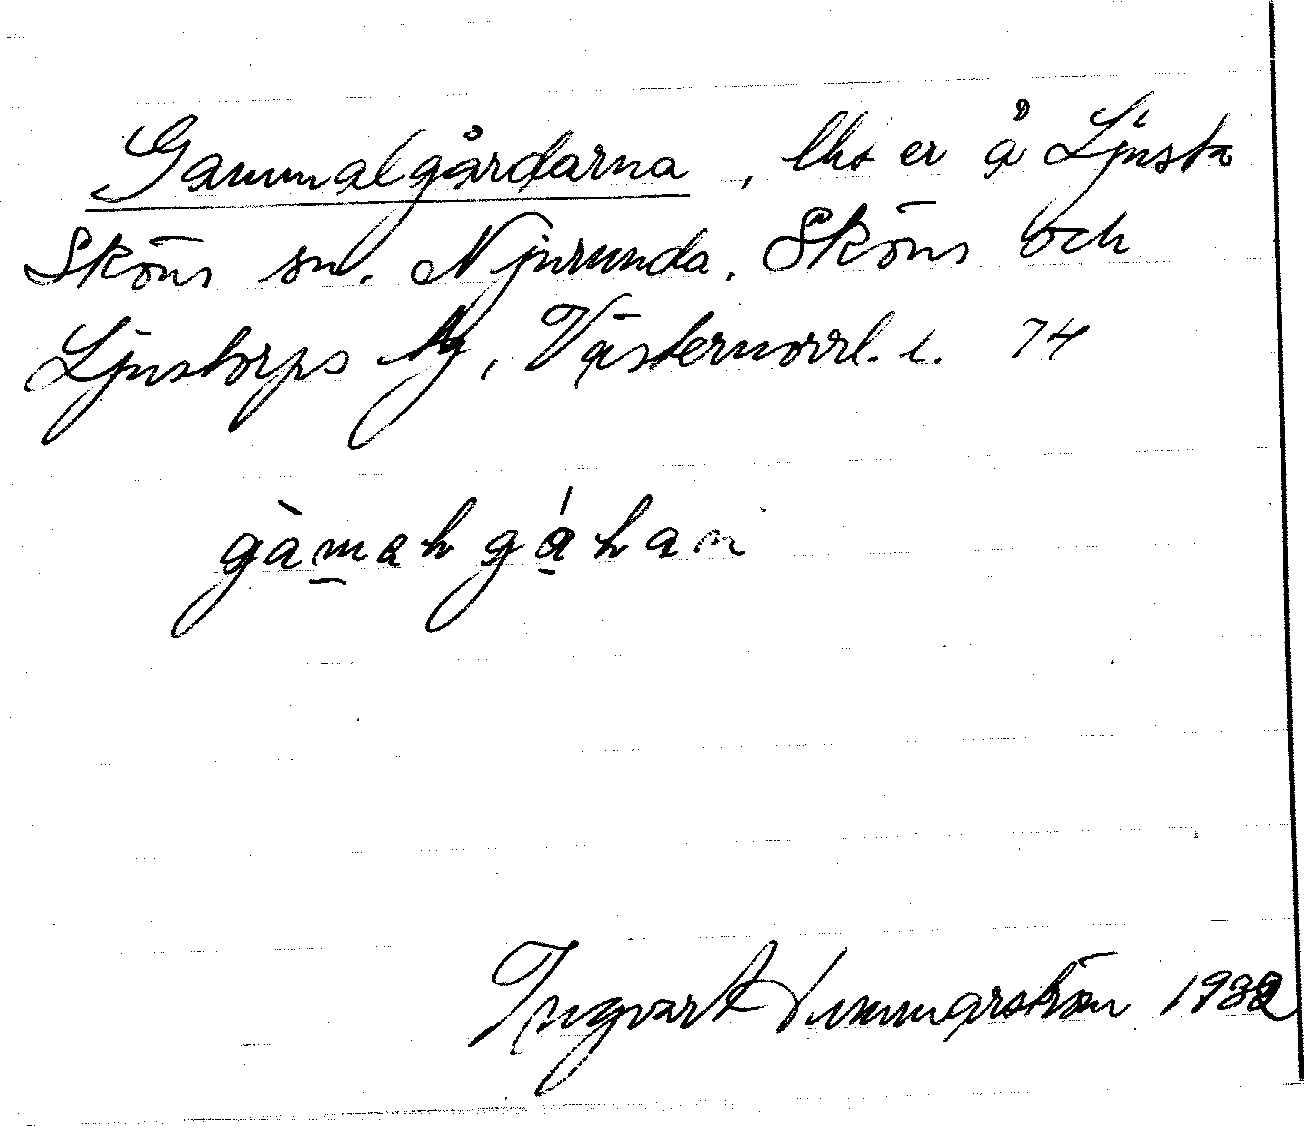 Gammalgårdarna, lhs er å Ljusta
Sköns sn. Njurunda, Sköns och
Ljustorps tg, Västernorrl. l. 74
gàmah gáhan
Ingvart 1932